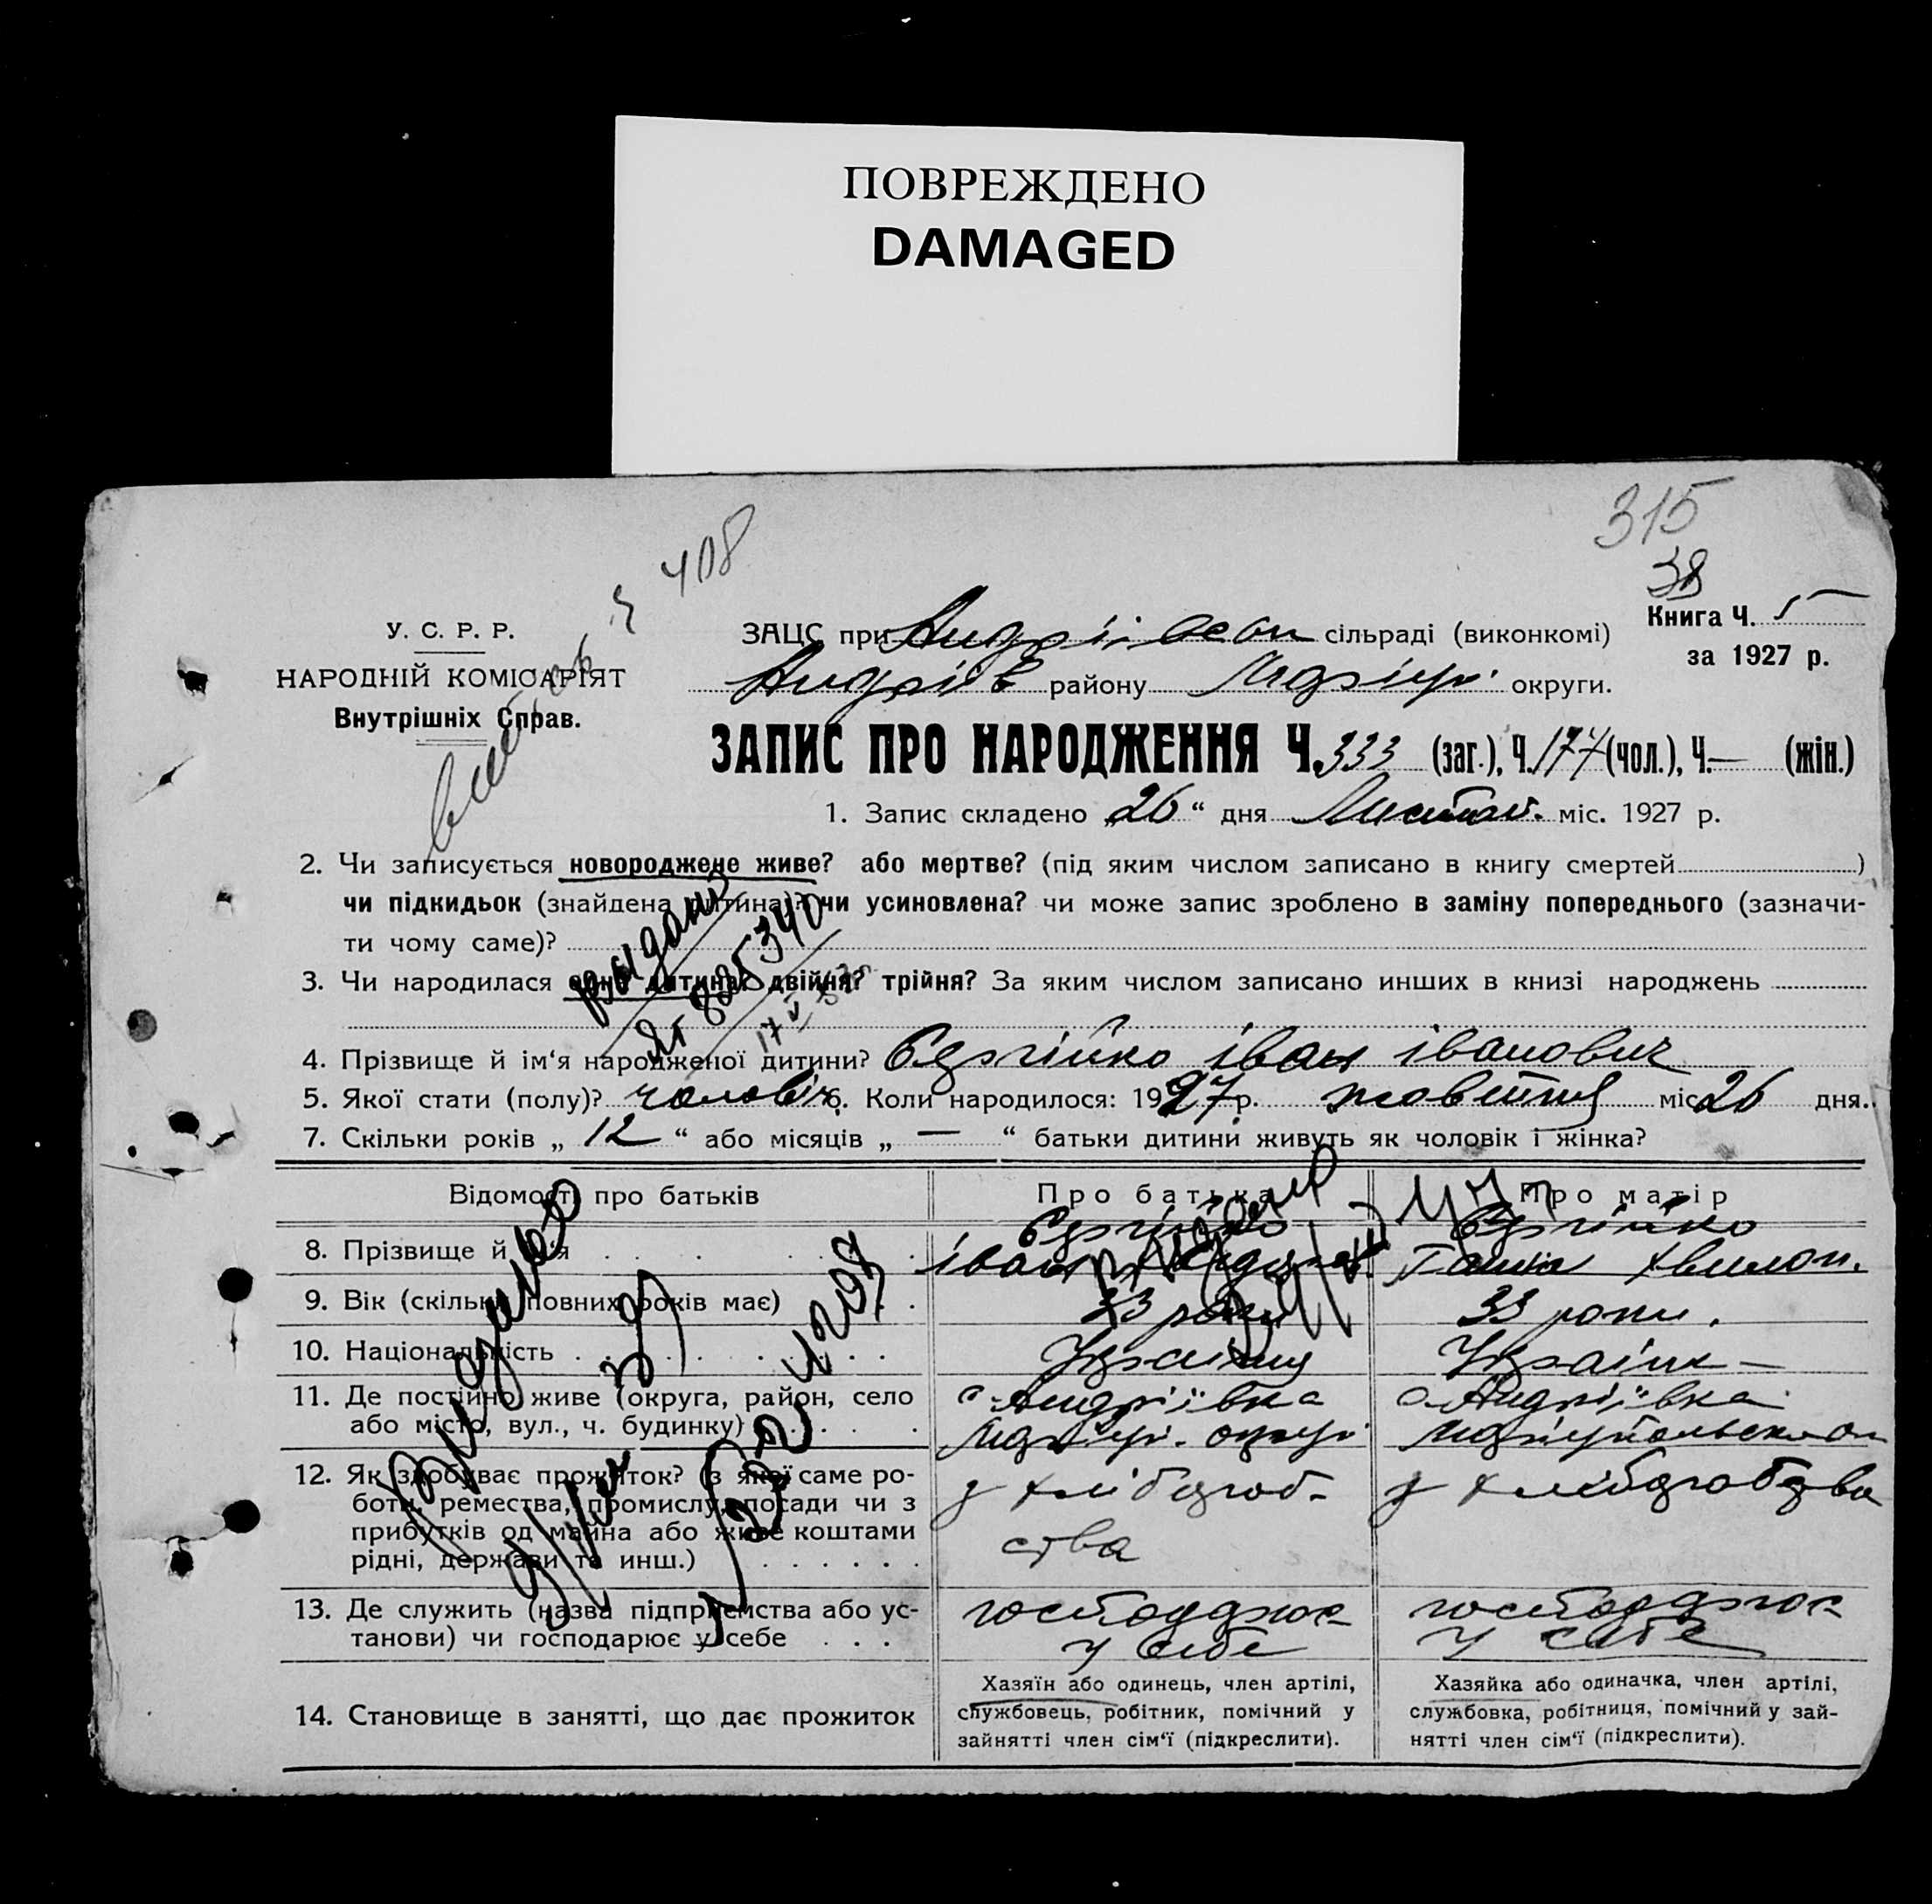 ПОВРЕЖДЕНО
DAMAGED
315
38
408
У. С. Р. Р.
НАРОДНІЙ КОМІСАРІЯТ
Внутрішніх Справ.
Книга Ч. 5
за 1927 р.
ЗАЦС при сільраді (виконкомі)
Андріїв району округи.
ЗАПИС ПРО НАРОДЖЕННЯ Ч. 333 (заг.), Ч. 174 (чол.), Ч. — (жін.)
1. Запис складено „26“ дня Листоп. міс. 1927 р.
2. Чи записується новороджене живе? або мертве? (під яким числом записано в книгу смертей )
чи підкидьок (знайдена дитина)? чи усиновлена? чи може запис зроблено в заміну попереднього (зазначи-
ти чому саме)?
3. Чи народилася одна дитина? двійня? трійня? За яким числом записано инших в книзі народжень
4. Прізвище й ім‘я народженої дитини? Сергійко Іван Іванович
5. Якої стати (полу)? чоловіч. 6. Коли народилося: 1927 р. жовтня міс. 26 дня.
7. Скільки років „ 12 “ або місяців „ — “ батьки дитини живуть як чоловік і жінка?
Відомості про батьків Про батька Про матір
8. Прізвище й ім‘я Сергійко Сергійко
Іван Ганна
9. Вік (скільки повних років має) 33 роки 33 роки.
10. Національність
11. Де постійно живе (округа, район, село с. Андріївка с. Андріївка
або місто, вул., ч. будинку)
12. Як здобуває прожиток? (з якої саме ро- з хлібороб-
боти, ремества, промислу, посади чи з
прибутків од майна або живе коштами ства
рідні, держави та инш.)
13. Де служить (назва підприємства або ус-
танови) чи господарює у себе у себе у себе
14. Становище в занятті, що дає прожиток
Хазяїн або одинець, член артілі,
службовець, робітник, помічний у
зайнятті член сім‘ї (підкреслити).
Хазяйка або одиначка, член артілі,
службовка, робітниця, помічний у зай-
нятті член сім‘ї (підкреслити).